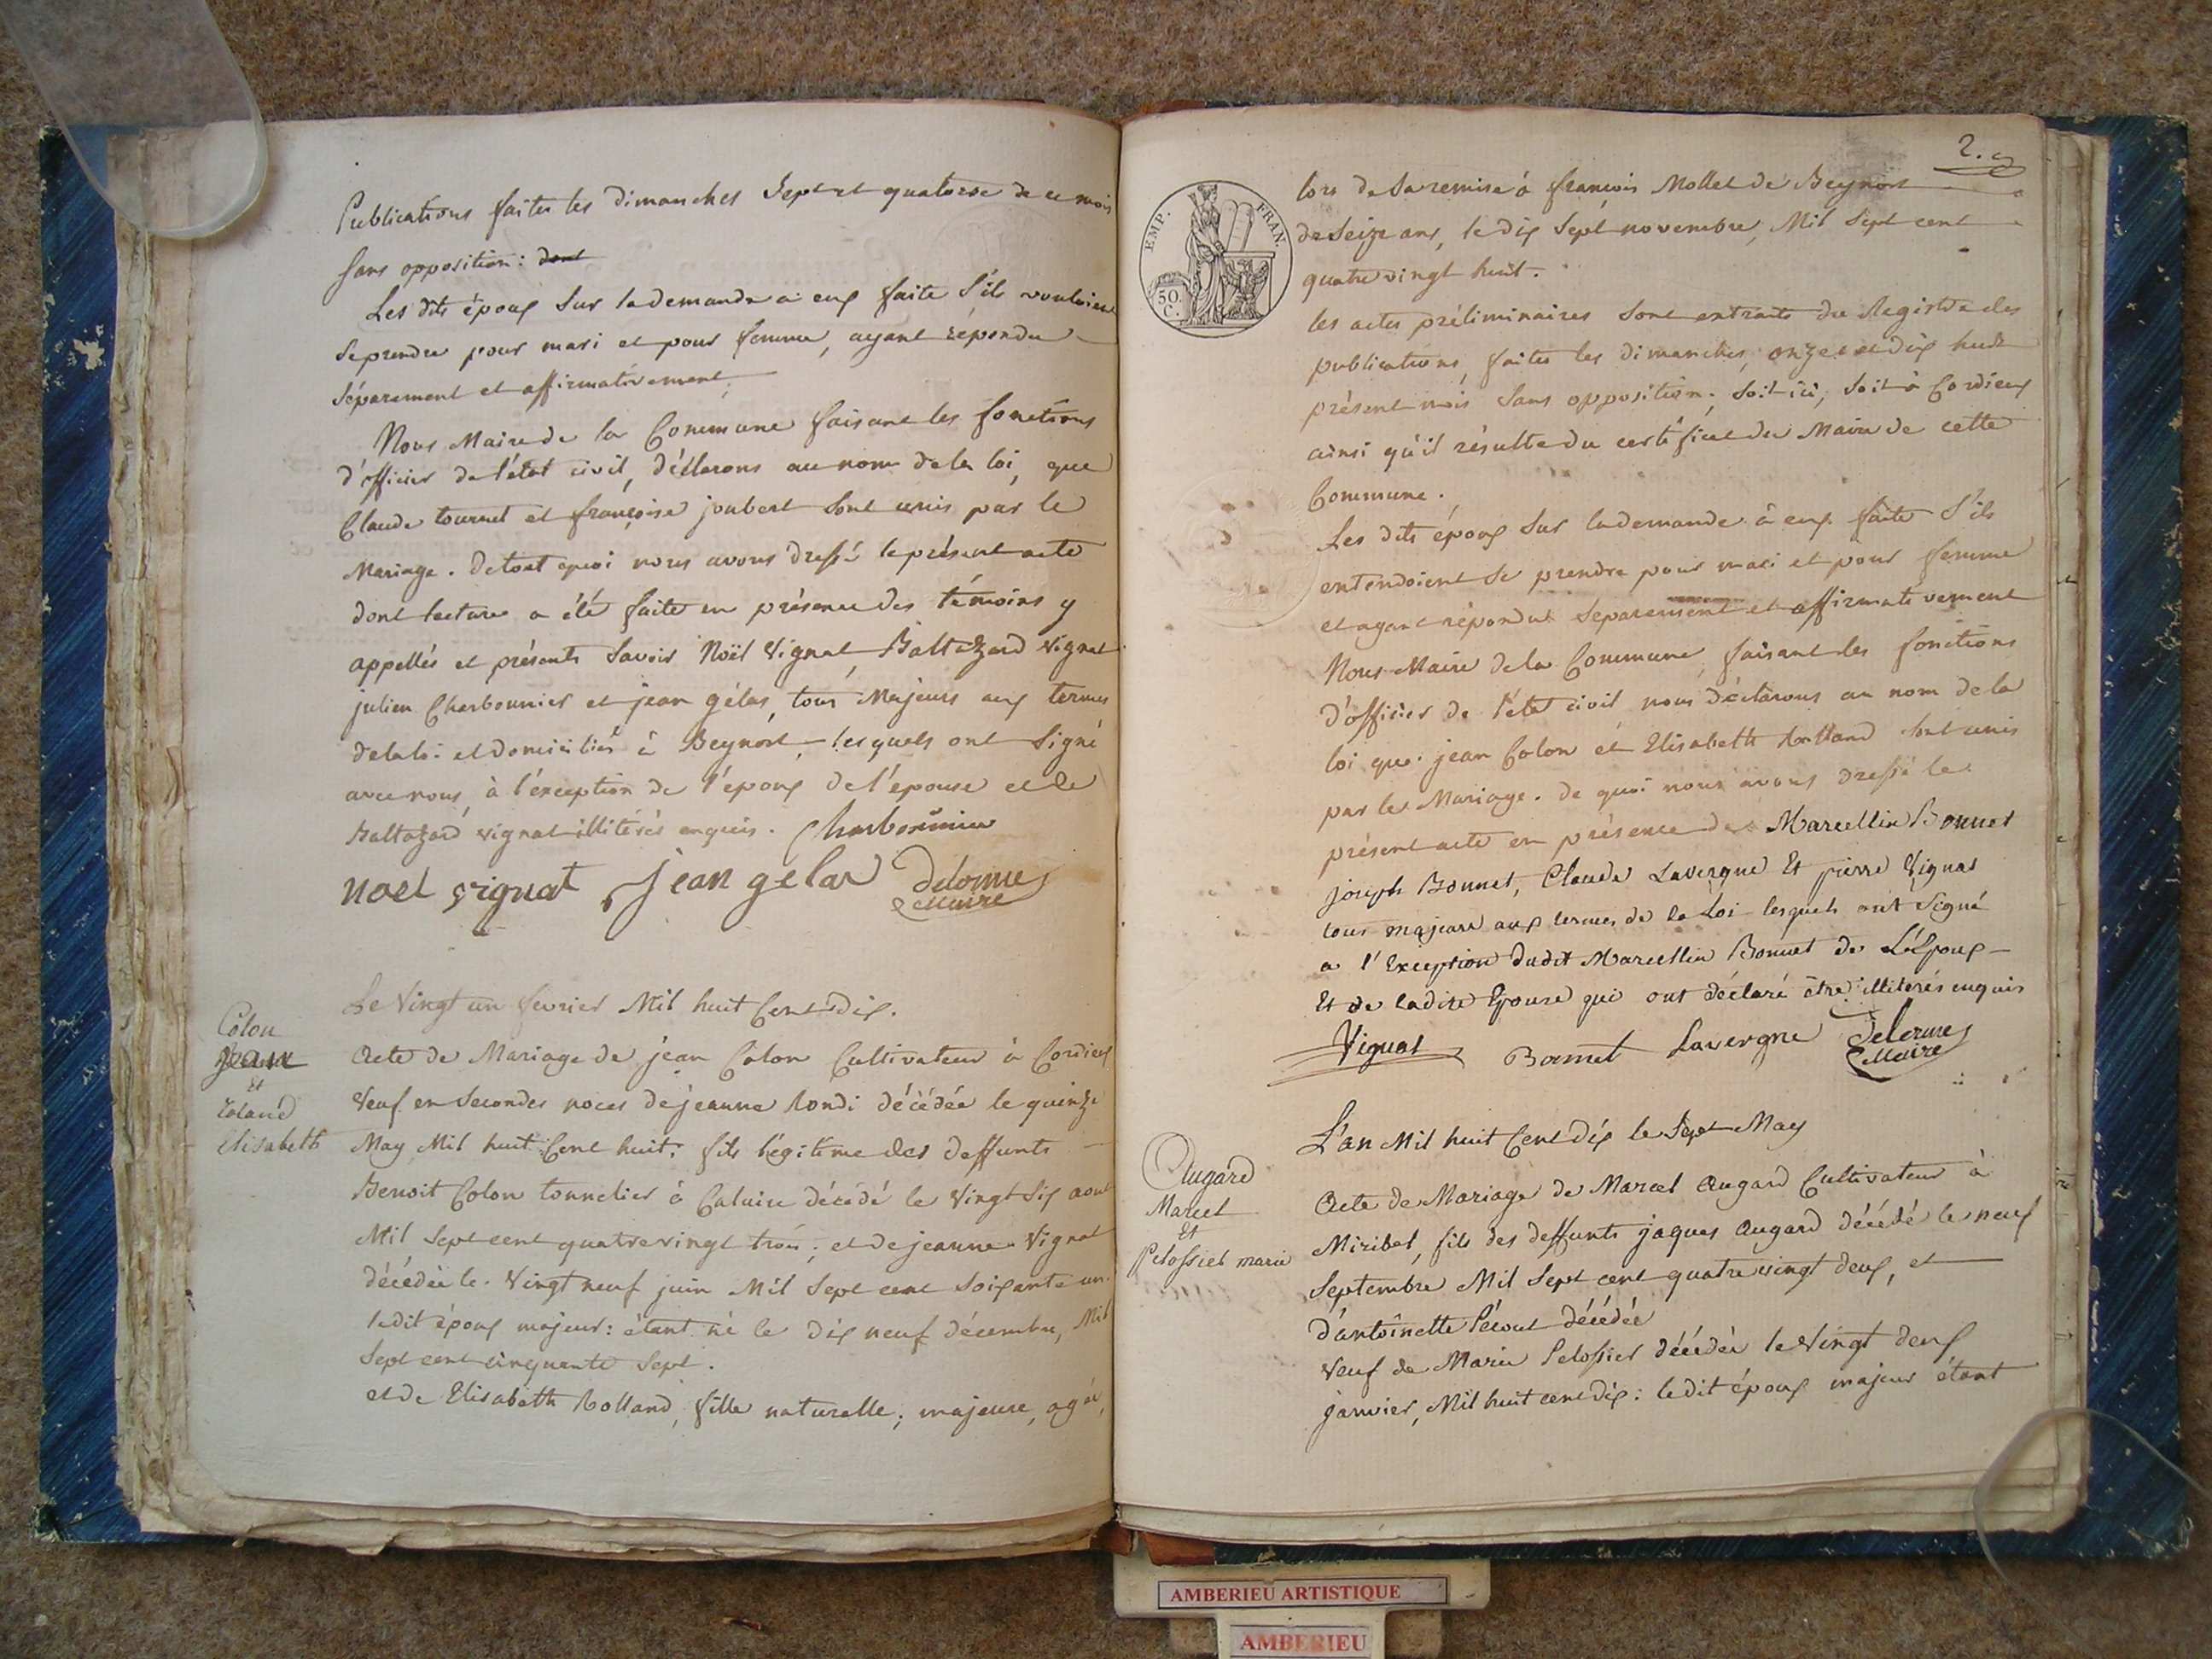 Publications faites les dimanches Sept et quatorze de ce mois
sans opposition : dont
Les dits époux sur la demande a eux faite s'ils vouloient
se prendre pour mari et pour femme, ayant répondu
séparement et affirmativement.
Nous Maire de la Commune faisant les fonctions
d'officier de l'état civil, déclarons au nom de la loi, que
Claude tournet et françoise joubert sont unis par le
Mariage. de tout quoi nous avons dressé le présent acte
dont lecture a été faite en présence des témoins y
appellés et présents Savoir Noël Vignat, Baltazard Vignat
julien Charbonnier et jean gélas, tous Majeurs aux termes
de la loi et domiciliés à Beynost, lesquels ont Signé
avec nous, à l'exception de l'époux de l'épouse et de
Baltazard vignat illitérés enquis. Charbonnier
noel vignat jean gelas Delorme
Maire
Le Vingt un fevrier Mil huit Cent dix.
Colon
Jean
Et
Roland
Elisabeth
Acte de Mariage de jean Colon Cultivateur à Cordieux
Veuf en Secondes noces de jeanne Rondi décédée le quinze
May Mil huit Cent huit, fils légitime des deffunts
Benoit Colon tonnelier à Caluire décédé le Vingt Six aout
Mil Sept cent quatrevingt trois ; et de jeanne Vignat
décédée le Vingt neuf juin Mil Sept cent Soixante un.
le dit époux majeur : étant né le dix neuf décembre, Mil
Sept cent cinquante Sept.
et de Elisabeth Rolland, fille naturelle, majeure, agée,
2.e
EMP. FRAN.
50.
C.
lors de sa remise à françois Mollet de Beynost
de Seize ans, le dix Sept novembre, Mil Sept cent
quatre vingt huit.
les actes préliminaires sont extraits du Registre des
publications, faites les dimanches, onze et dix huit
présent mois Sans opposition, Soit ici, Soit à Cordieux
ainsi qu'il résulte du certificat du Maire de cette
Commune.
Les dits époux Sur la demande à eux faite S'ils
entendoient se prendre pour mari et pour femme
et ayant répondu Separement et affirmativement
Nous Maire de la Commune faisant les fonctions
d'officier de l'état civil nous déclarons au nom de la
loi que jean Colon et Elisabeth Rolland sont unis
par le Mariage. de quoi nous avons dressé le
présent acte en présence de Marcellin Bonnet
joseph Bonnet, Claude Lavergne Et pierre Vignat
tous majeurs aux termes de la Loi lesquels ont Signé
a l'Exception dudit Marcellin Bonnet de L'Epoux
Et de ladite Epouse qui ont déclaré être illitérés enquis
Vignat Bonnet Lavergne Delorme
Maire
L'an Mil huit Cent dix le Sept May
Augard
Marcel
Et
Pelossier marie
Acte de Mariage de Marcel Augard Cultivateur à
Miribel, fils des deffunts jaques Augard décédé le neuf
Septembre Mil Sept cent quatre vingt deux, et
d'antoinette Pécout décédée
Veuf de Marie Pelossier décédée le Vingt deux
janvier, Mil huit cent dix : le dit époux majeur étant
AMBERIEU ARTISTIQUE
AMBERIEU